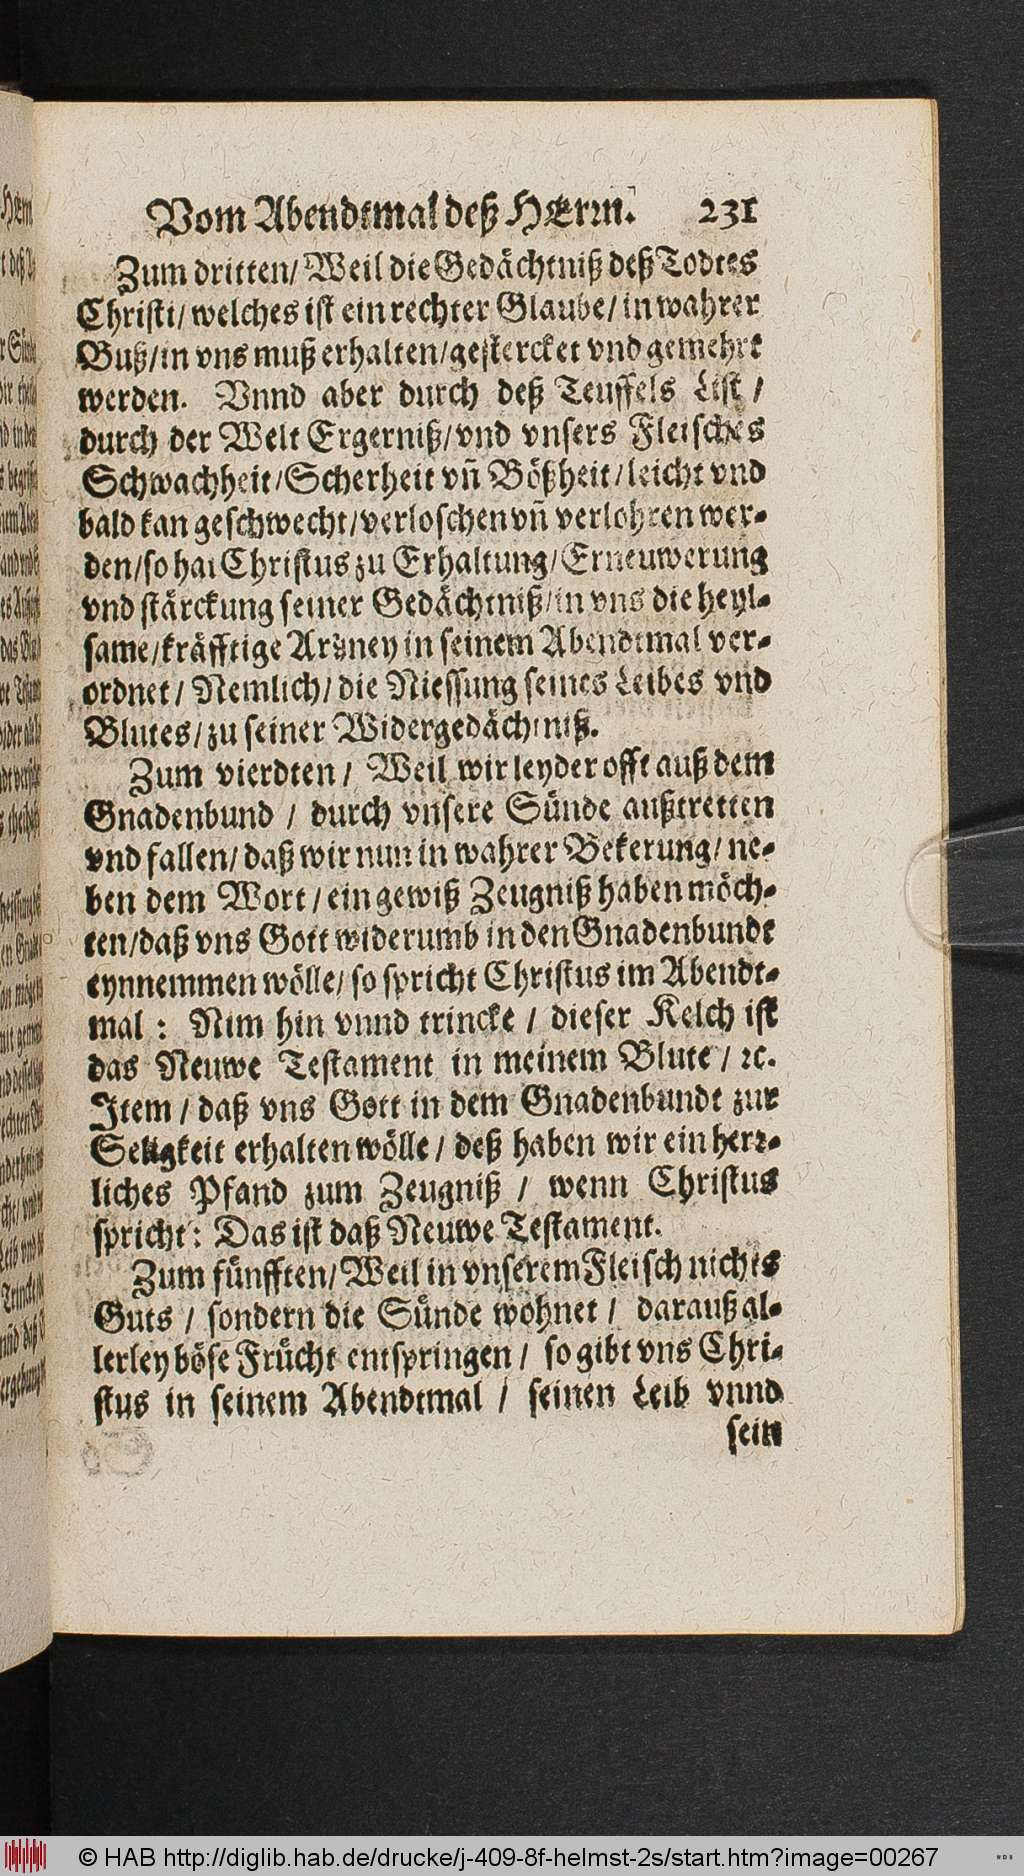 Vom Abendtmal deß HErrn. 231
Zum dritten/ Weil die Gedächtniß deß Todtes
Christi/ welches ist ein rechter Glaube/ in wahrer
Buß/ in vns muß erhalten/ gestercket vnd gemehrt
werden. Vnnd aber durch deß Teuffels List /
durch der Welt Ergerniß/ vnd vnsers Fleisches
Schwachheit/ Scherheit vñ Bößheit/ leicht vnd
bald kan geschwecht/ verloschen vñ verlohren wer-
den/ so hat Christus zu Erhaltung/ Erneuwerung
vnd stärckung seiner Gedächtniß/ in vns die heyl-
same/ kräfftige Artzney in seinem Abendtmal ver-
ordnet/ Nemlich/ die Niessung seines Leibes vnd
Blutes/ zu seiner Widergedächtniß.
Zum vierdten / Weil wir leyder offt auß dem
Gnadenbund / durch vnsere Sünde außtretten
vnd fallen/ daß wir nun in wahrer Bekerung/ ne-
ben dem Wort / ein gewiß Zeugniß haben möch-
ten/ daß vns Gott widerumb in den Gnadenbundt
eynnemmen wölle/ so spricht Christus im Abendt-
mal : Nim hin vnnd trincke / dieser Kelch ist
das Neuwe Testament in meinem Blute / ꝛc.
Item / daß vns Gott in dem Gnadenbundt zur
Seligkeit erhalten wölle / deß haben wir ein hertz-
liches Pfand zum Zeugniß / wenn Christus
spricht: Das ist daß Neuwe Testament.
Zum fünfften/ Weil in vnserem Fleisch nichts
Guts / sondern die Sünde wohnet / darauß al-
lerley böse Frücht entspringen / so gibt vns Chri-
stus in seinem Abendtmal / seinen Leib vnnd
sein
© HAB http://diglib.hab.de/drucke/j-409-8f-helmst-2s/start.htm?image=00267